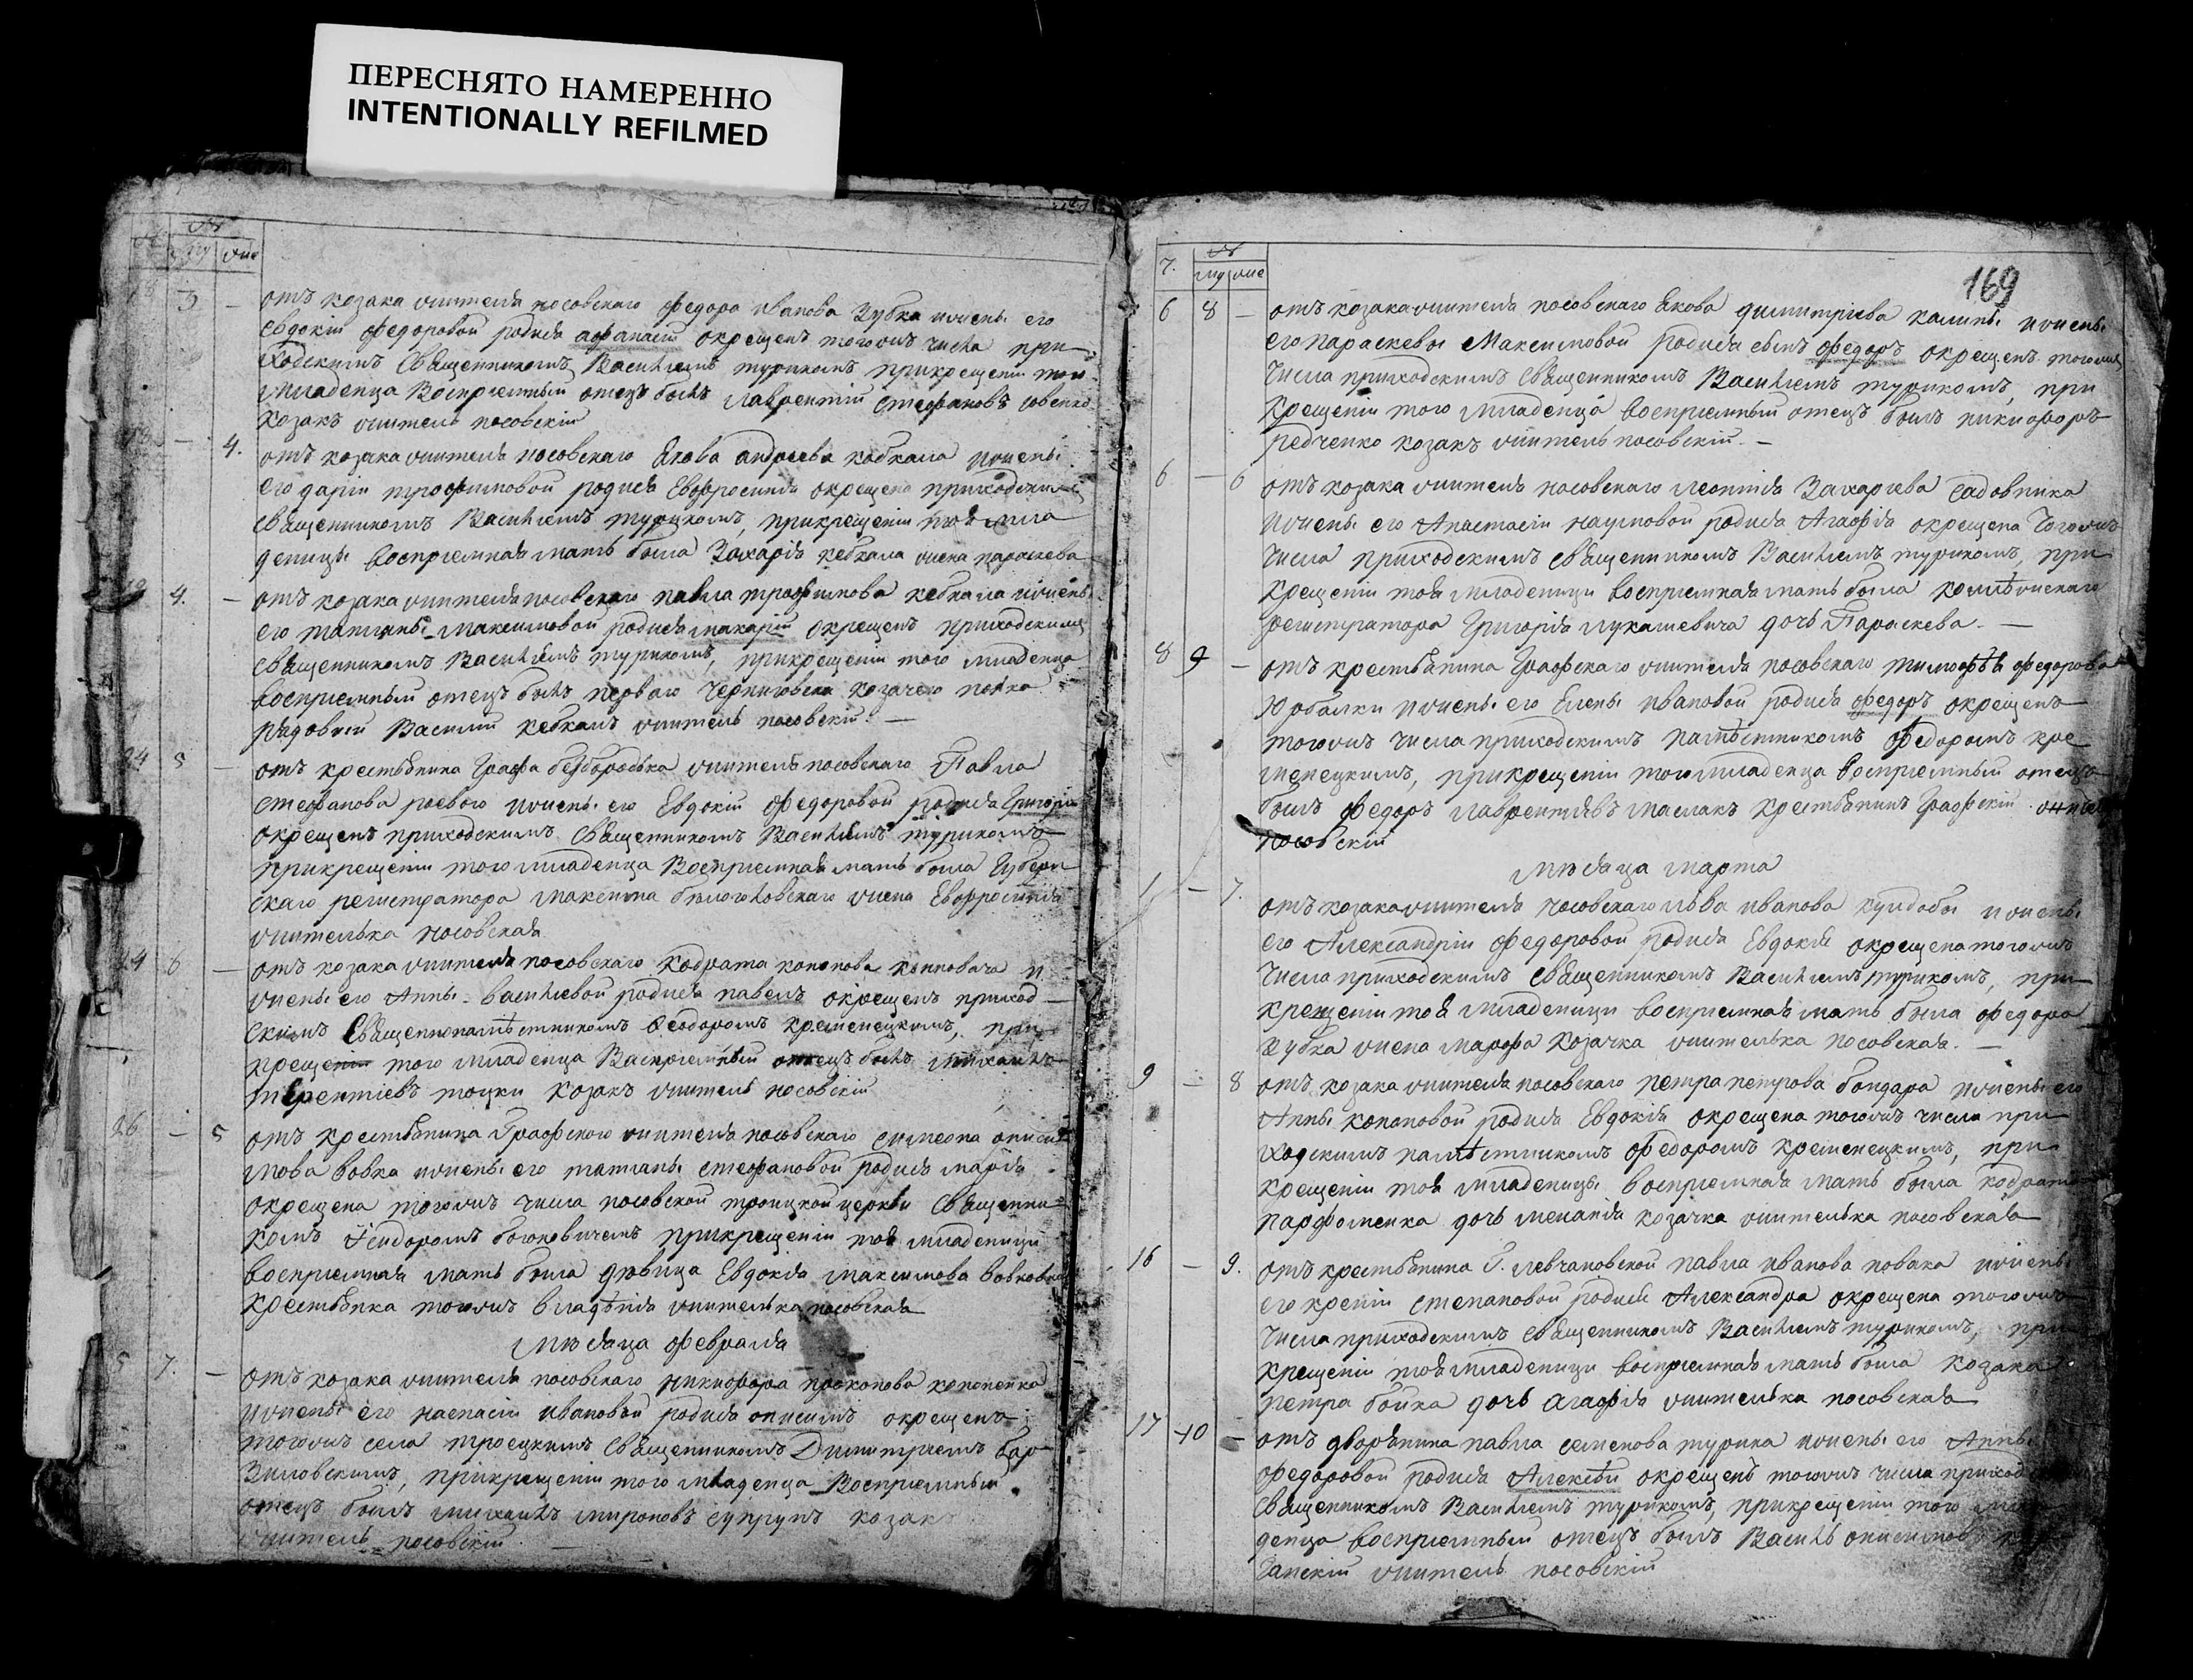 ПЕРЕСНЯТО НАМЕРЕННО
INTENTIONALLY REFILMED
3 — отъ козака жителя носовскаго федора иванова Зубка и жены его
евдокіи федоровой родися афанасій окрещенъ тогожъ числа при
ходскимъ священникомъ Василіемъ туринкомъ при крещеніи того
младенца Воспріемный отецъ былъ лаврентій стефановъ
козакъ житель носовскій
— 4. отъ козака жителя носовскаго Якова андреева кобкала и жены
его даріи трофимовой родися Евфросинія окрещена приходским
священникомъ Василіемъ туринкомъ, при крещеніи тоя мла
деницы воспріемная мать была Захарія кебкала жена параскева
4. — отъ козака жителя носовскаго павла трофимова кебкала и жены
его татіаны максимовой родися макарій окрещенъ приходским
священникомъ Василіемъ туринкомъ, при крещеніи того младенца
воспріемный отецъ былъ перваго Черниговска козачего полка
рядовый Василій кебкалъ житель носовскій. —
24 5 — отъ крестьянина Графа безбородька жителя носовскаго Павла
стефанова роевого и жены его Евдокіи федоровой родися Григорій
окрещенъ приходскимъ священникомъ Василіемъ туринкомъ
при крещеніи того младенца Воспріемная мать была Губерн
скаго регистратора максима жена Евфросинія
жителька носовская
24 6 — отъ козака жителя носовскаго кодрата кононова и
жены его Анны василіевой родися павелъ окрещенъ приход
скимъ священнонамѣстникомъ Феодоромъ кременецкимъ, при
крещеніи того младенца Воспріемный отецъ былъ михаилъ
терентіевъ козакъ житель носовскій
26 — 5 отъ крестьянина Графского жителя носовскаго симеона ониси
мова вовка и жены его татіаны стефановой родися марія
окрещена тогожъ числа носовской троицкой церкви священни
комъ при крещеніи тоя младеницы
воспріемная мать была дѣвица Евдокія максимова
крестьянка тогожъ владѣнія жителька носовская
Мѣсяца февраля
5 7. — отъ козака жителя носовскаго никифора прокопова кононенка
и жены его настасіи ивановой родися онисимъ окрещенъ
тогожъ села троецкимъ священникомъ Димитріемъ
при крещеніи того младенца Воспріемный
отецъ былъ михаилъ мироновъ супрунъ козакъ
житель носовскій. —
169
6 8 — отъ козака жителя носовскаго Якова димитріева калины и жены
его параскевы Максимовой родися сынъ федоръ окрещенъ тогожъ
Числа приходскимъ священникомъ Василіемъ туринкомъ, при
крещеніи того младенца, воспріемный отецъ былъ никифоръ
редченко козакъ житель носовскій. —
6 — 6 отъ козака жителя носовскаго леонтія Захаріева садовника
и жены его Анастасіи наумовой родися Агафія окрещена Тогожъ
Числа приходскимъ священникомъ Василіемъ туринкомъ, при
крещеніи тоя младеници воспріемная мать была
регистратора Григорія лукашевича дочь Параскева. —
8 9 — отъ крестьянина Графскаго жителя носовскаго тимофѣя федорова
и жены его Елены ивановой родися федоръ окрещенъ
тогожъ числа приходскимъ намѣстникомъ федоромъ кре
менецкимъ, при крещеніи того младенца воспріемный отецъ
былъ федоръ лаврентіевъ маслакъ крестьянинъ Графскій жител
носовскій
Мѣсяца марта
1 — 7. отъ козака жителя носовскаго льва иванова и жены
его Александріи федоровой родися Евдокія окрещена тогожъ
Числа приходскимъ священникомъ Василіемъ туринкомъ, при
крещеніи тоя младеници воспріемная мать была федора
Зубка жена марфа козачка жителька носовская. —
9 — 8 отъ козака жителя носовскаго петра петрова бондара и жены его
Анны кононовой родися Евдокія окрещена тогожъ числа при
ходскимъ намѣстникомъ федоромъ кременецкимъ, при
крещеніи тоя младеницы воспріемная мать была кодрата
парфоменка дочь меланія козачка жителька носовская
16 — 9. отъ крестьянина Г. левчановской павла иванова новака и жены
его ксеніи степановой родися Александра окрещена тогожъ
Числа приходскимъ священникомъ Василіемъ туринкомъ, при
крещеніи тоя младеници воспріемная мать была козака
петра бойка дочь агафія жителька носовская
17 10 — отъ дворянина павла семенова турина и жены его Анны
федоровой родися Алексѣй окрещенъ тогожъ числа приход
священникомъ Василіемъ туринкомъ, при крещеніи того мла
денца воспріемный отецъ былъ Василь онисимовъ
житель носовскій